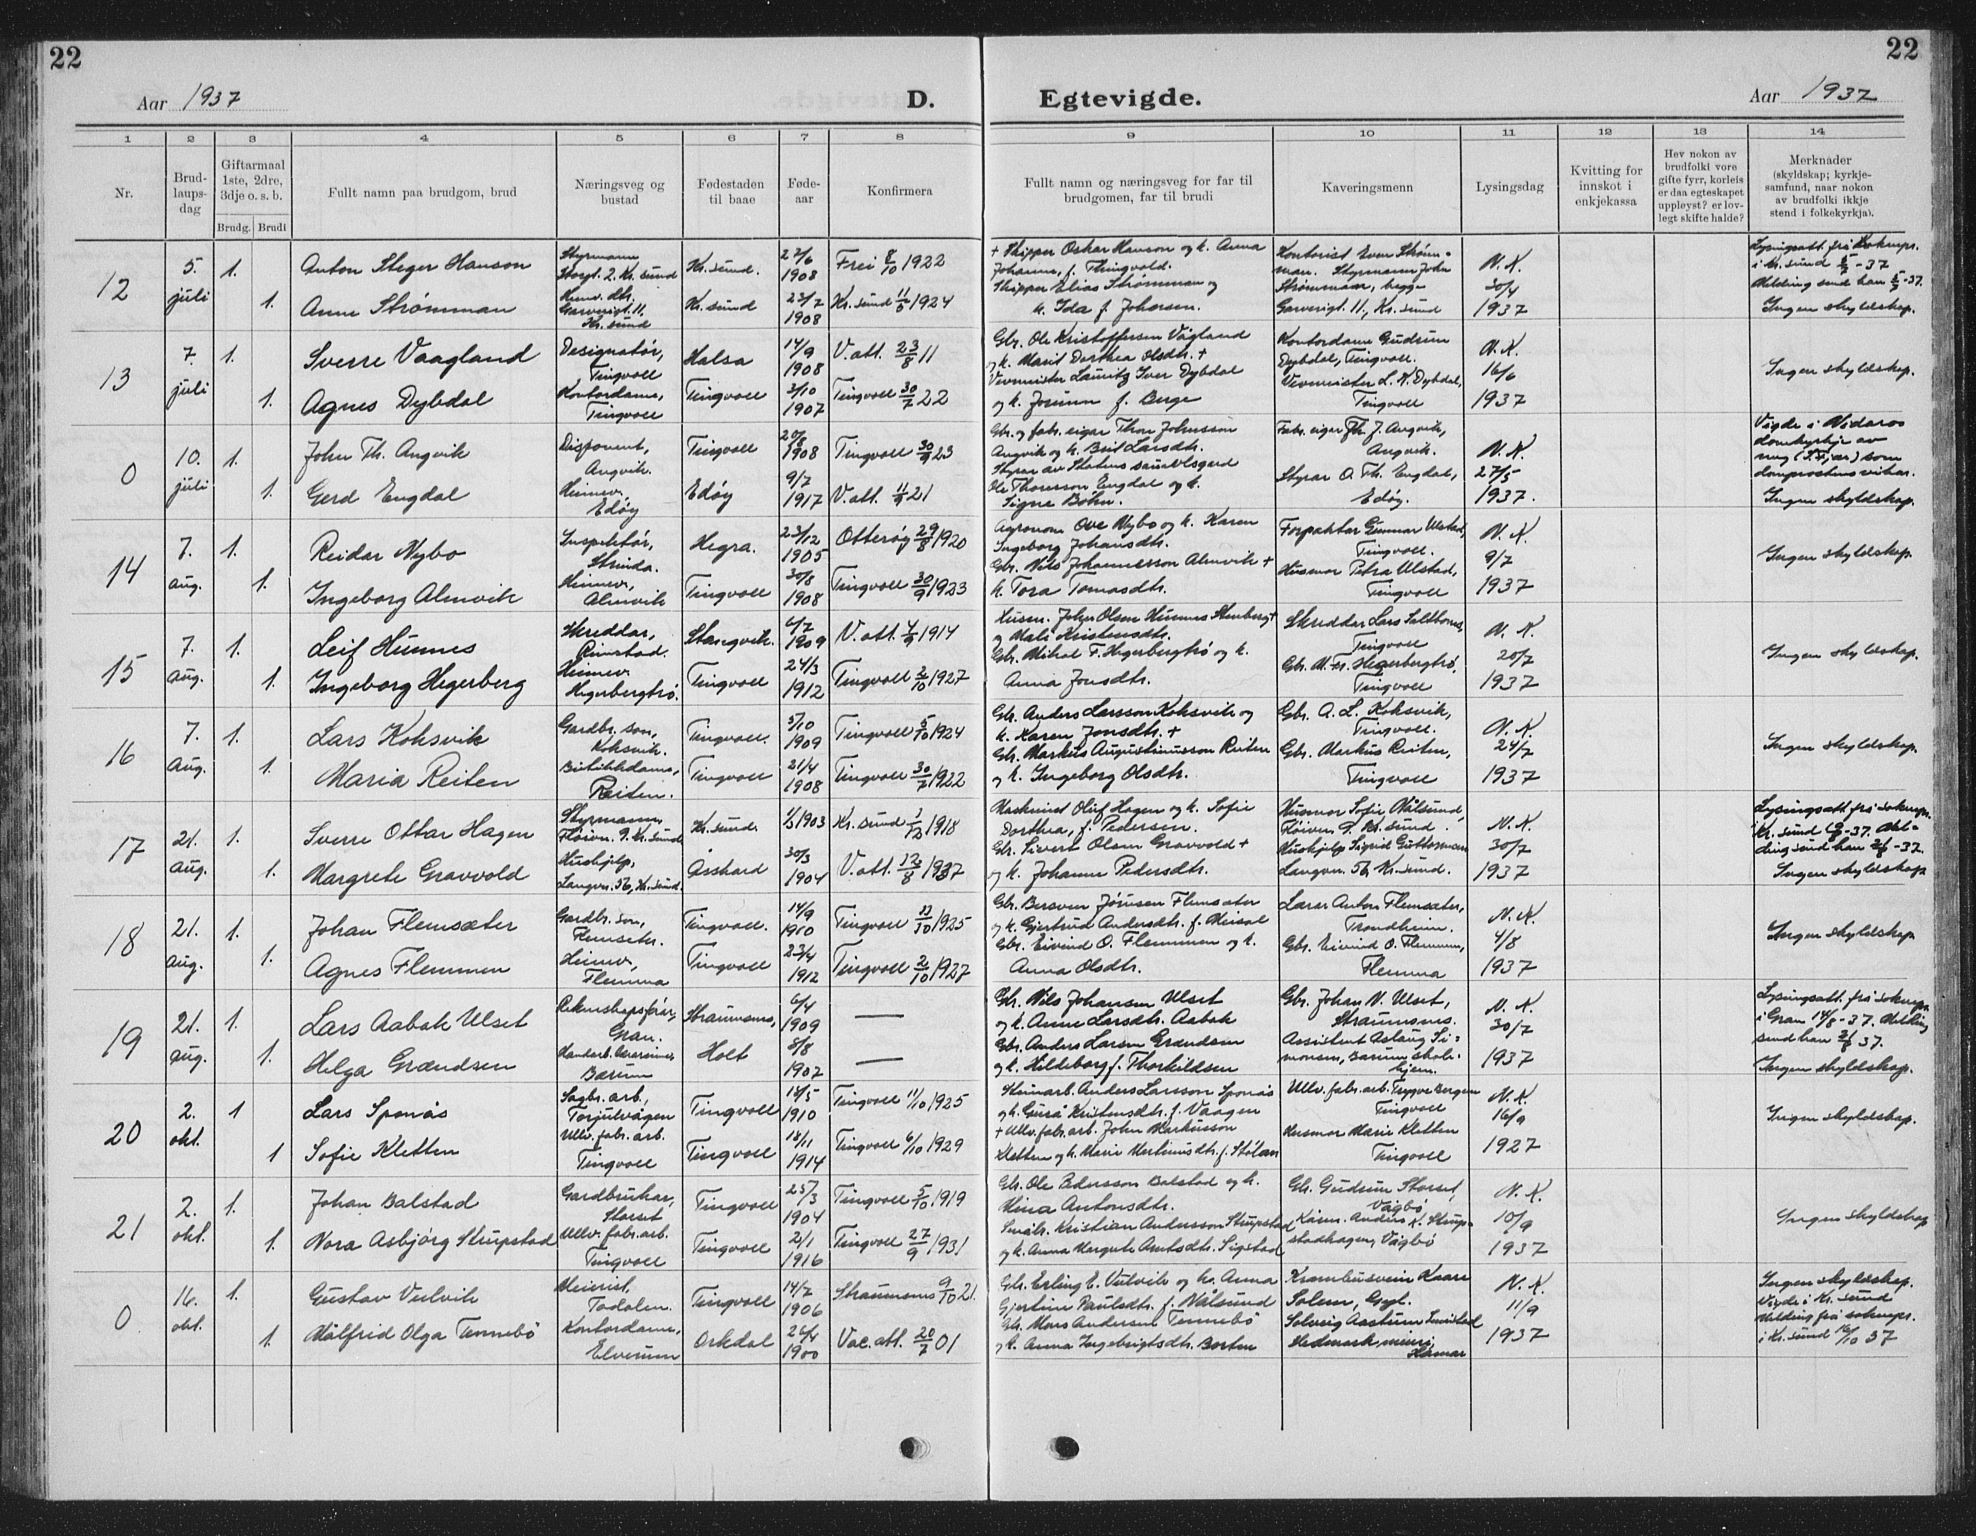 22
22
Aar 1937
D.
Egtevigde.
Aar 1937
1 2 3 4 5 6 7 8 9 10 11 12 13 14
Nr.
Brud-
laups-
dag
Giftarmaal
1ste, 2dre,
3dje o. s. b.
Brudg. Brudi
Fullt namn paa brudgom, brud
Næringsveg og
bustad
Fødestaden
til baae
Føde-
aar
Konfirmera
Fullt namn og næringsveg for far til
brudgomen, far til brudi
Kaveringsmenn
Lysingsdag
Kvitting for
innskot i
enkjekassa
Hev nokon av
brudfolki vore
gifte fyrr, korleis
er daa egteskapet
uppløyst? er lov-
legt skifte halde?
Merknader
(skyldskap; kyrkje-
samfund, naar nokon
av brudfolki ikkje
stend i folkekyrkja).
12
5.
juli
1.
Anton Steger Hanson
Styrmann
Storgt. 2. Kr. sund
Kr. sund.
22/6
1908
Frei 8/10 1922
+ Skipper Oskar Hanson og k. Anna
Johanna, f. Thingvold.
Kontorist Even Strøm-
man. Styrmann John
Strømman, begge
Garverigt. 11, Kr. sund
N. K.
30/4
1937
Lysingsatt. frå Sokneps.
i Kr. sund 5/7 - 37
Melding send han 5/7 - 37.
Ingen skyldskap.
1.
Anna Strømman
Heimv. dtr.
Garverigt. 11,
Kr. sund
Kr. sund
23/7
1908
Kr. sund 11/5 1924
Skipper Elias Strømman og
k. Ida f. Johansen.
13
7.
juli
1.
Sverre Vaagland
Designatør,
Tingvoll
Halsa
14/9
1908
V. att. 23/8 11
Gbr. Ole Kristoffersen Vågland
og k. Marit Dorthea Olsdtr. +
Kontordame Gudrun
Dybdal, Tingvoll.
Vevmeister L. K. Dybdal,
Tingvoll
N. K.
16/6
1937
Ingen skyldskap.
1.
Agnes Dybdal
Kontordame,
Tingvoll
Tingvoll
3/10
1907
Tingvoll 30/7 22
Vevmeister Lauritz Iver Dybdal
og k. Jorunn f. Berge
0
10.
juli
1.
John Th. Angvik
Disponent,
Angvik.
Tingvoll
20/8
1908
Tingvoll 30/9 23
Gbr. og fabr. eigar Thore Johnsson
Angvik og k. Brit Larsdtr.
Fabr. eigar Th. J. Angvik,
Angvik.
Styrar O. Th. Engdal,
Edøy.
N. K.
27/5
1937.
Vigde i Nidaros
domkyrkje av
meg som
domprostens vikar.
Ingen skyldskap.
1.
Gerd Engdal
Heimev.
Edøy
Edøy
9/7
1917
V. att. 11/9 21
Styrar av Statens sauavlsgard
Ole Thoresson Engdal og k.
Signe Bøhn.
14
7.
aug.
1.
Reidar Nybo
Inspektør,
Strinda.
Hegra.
23/12
1905
Otterøy 29/8 1920
Agronom Ove Nybo og k. Karen
Ingeborg Johansdtr.
Forpaktar Gunnar Ulstad,
Tingvoll.
Husmor Petra Ulstad,
Tingvoll
N. K.
9/7
1937
Ingen skyldskap.
1.
Ingeborg Almvik
Heimev,
Almvik
Tingvoll
30/8
1908
Tingvoll 30/9 1923
Gbr. Nils Johannesson Almvik +
k. Tora Tomasdtr.
15
7.
aug.
1.
Leif Hunnes
Skreddar,
Rimstad.
Stangvik.
6/7
1909
V. att. 4/9 1914
Husm. John Olsen Hunnes Stenberg +
og Mali Kristensdtr.
Skreddar Lars Saltbones,
Tingvoll
Gbr. M. Fr. Hegerbergtrø,
Tingvoll
N. K.
20/7
1937
Ingen skyldskap.
1.
Ingeborg Hegerberg
Heimev.
Hegerbergtrø.
Tingvoll
24/3
1912
Tingvoll 2/10 1927
Gbr. Mikal F. Hegerbergtrø og k.
Anna Jonsdtr.
16
7.
aug.
1.
Lars Koksvik
Gardbr. son,
Koksvik.
Tingvoll.
5/10
1909
Tingvoll 5/10 1924
Gbr. Anders Larsson Koksvik og
k. Karen Jonsdtr. +
Gbr. A. L. Koksvik,
Tingvoll.
Gbr. Markus Reiten,
Tingvoll
N. K.
24/7
1937
Ingen skyldskap.
1.
Maria Reiten
Butikkdame,
Reiten.
Tingvoll
21/4
1908
Tingvoll 30/7 1922
Gbr. Markus Augustinusson Reiten
og k. Ingeborg Olsdtr.
17
21.
aug.
1.
Sverre Ottar Hagen
Styrmann,
Fløivn. 9. Kr. sund
Kr. sund
1/3 1903
Kr. sund 1918
Maskinist Oluf Hagen og k. Sofie
Dorthea, f. Pedersen.
Husmor Sofie Målsund,
Fløivn. 9. Kr. sund.
Hushjelp Sigrid Guttormsen
Langvn. 56, Kr. sund.
N. K.
30/7
1937
Lysingsatt. frå sokneps.
i Kr. sund - 37. Mel-
ding send han - 37.
Ingen skyldskap.
1.
Margrete Gravvold
Hushjelp,
Langvn. 56, Kr. sund.
Asskard
30/3
1904
V. att. 12/8 1937
Gbr. Sivert Olsen Gravvold +
og k. Johanna Pedersdtr.
18
21.
aug.
1.
Johan Flemsæter
Gardbr. son,
Flemseter.
Tingvoll.
14/9
1910
Tingvoll 1925
Gbr. Bersven Jørnsen Flemsæter
og k. Gjertrud Andersdtr. f. Meisal
Lærar Anton Flemsæter,
Trondheim.
Gbr. Eivind O. Flemmen,
Flemma
N. K.
4/8
1937
Ingen skyldskap.
1.
Agnes Flemmen
Heimev,
Flemma
Tingvoll
23/4
1912
Tingvoll 2/10 1927
Gbr. Eivind O. Flemmen og k.
Anna Olsdtr.
19
21.
aug.
1.
Lars Aabak Ulset
Rekneskapsførar,
Gran.
Straumsnes,
6/4
1909
—
Gbr. Nils Johansen Ulset
og k. Anne Larsdtr. Aabak
Gbr. Johan N. Ulset,
Straumsnes.
Assistent Aslaug Si-
monsen, Bærum skole-
hjem.
N. K.
30/7
1937
Lysingsatt. frå sokneps.
i Gran 14/8 - 37. Melding
send han 37.
Ingen skyldskap.
1.
Helga Grændsen
Handarb. lærerinne
Bærum
Holt
8/8
1907
—
Gbr. Anders Larsen Grændsen
og k. Hildeborg f. Thorkildsen
20
2.
okt.
1
Lars Sponås
Sagbr. arb.,
Torjulvågen
Tingvoll
18/5
1910
Tingvoll 11/10 1925
Steinarb. Anders Larsson Sponås
og k. Gura Kristensdtr. f. Vaagen
Ullv. fabr. arb. Trygve Bergem
Tingvoll
Husmor Marie Kletten
Tingvoll
N. K.
16/9
1927
Ingen skyldskap.
1
Sofie Kletten
Ullv. fabr. arb.
Tingvoll
Tingvoll
18/11
1914
Tingvoll 6/10 1929
+ Ullv. fabr. arb. John Markusson
Kletten og k. Marie Martinusdtr. f. Stølan
21
2.
okt.
1.
Johan Balstad
Gardbrukar,
Storset
Tingvoll
25/3
1904
Tingvoll 5/10 1919
Gbr. Ole Pedersson Balstad og k.
Mina Antonsdtr.
Gbr. Gudrun Storset,
Vågbø
Kåsm. Anders K. Strup-
stadhagen, Vågbø
N. K.
10/9
1937
Ingen skyldskap
1.
Nora Asbjørg Strupstad
Ullv. fabr. arb.
Tingvoll
Tingvoll
2/1
1916
Tingvoll 27/9 1931
Småbr. Kristian Andersson Strupstad
og k. Anna Margrete Arntsdtr. Sigstad
0
16.
okt.
1.
Gustav Vulvik
Meierist,
Todalen.
Tingvoll
14/7
1906
Straumsnes 9/10 21.
Gbr. Erling E. Vulvik og k. Anna
Gjertine Paulsdtr. f. Målsund
Krambusvein Kaare
Solem,
Solveig Aastum
Hedmark meieri,
Hamar
N. K.
11/9
1937
Ingen skyldskap.
Vigde i Kr. sund
Melding frå sokneps.
i Kr. sund 16/10 37
1.
Målfrid Olga Tennebø
Kontordame,
Elverum
Orkdal
26/4
1900
Vac. att. 20/7 01
Gbr. Mons Andersen Tennebø
og k. Anna Ingebrigtsdtr. Borten